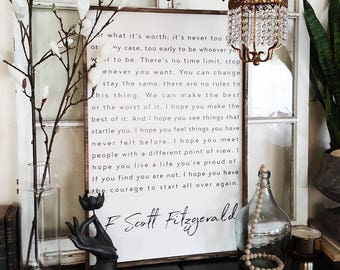 or what it's worth: it's never too
my case, too early to be whoever
it to be. There's no time limit, stop
enever you want. You can change
stay the same, there are no rules to
this thing. We can make the best
or the worst of it. I hope you make the
best of it. And I hope you see things that
startle you. I hope you feel things you have
never felt before. I hope you meet
people with a different point of view. I
hope you live a life you're proud of.
If you find you are not, I hope you have
the courage to start all over again.
F Scott Fitzgerald